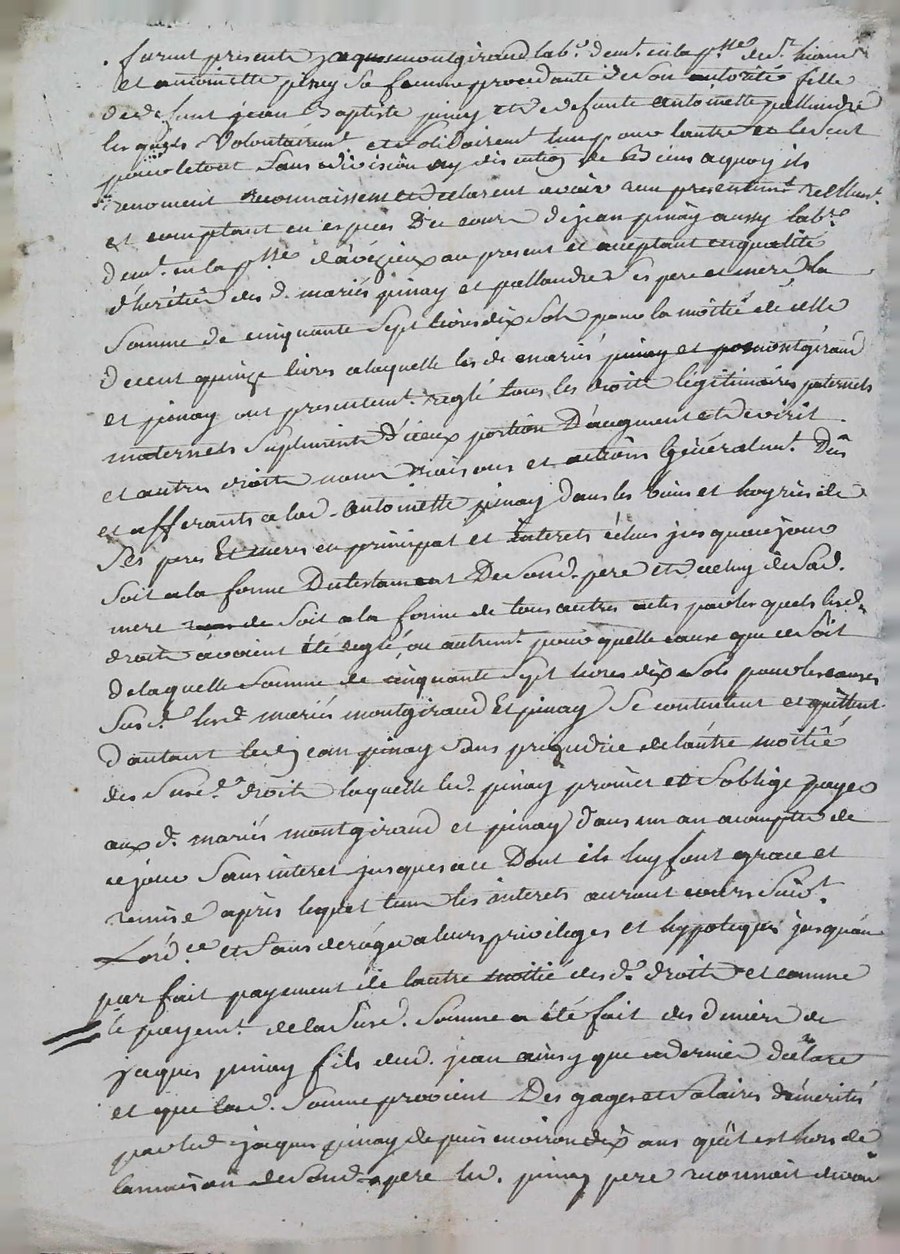 furent presents jaques montgirand lab.r dem.t en la p.sse de s.t
et antoinette pinay sa femme procedante de son autorité fille
de defunt jean Baptiste pinay et de defunte antoinette pallandre
lesquels volontairem.t et solidairem.t l'un pour l'autre et le seul
pour le tout sans division ny discution de Biens a quoy ils
renoncent reconnaissent et declarent avoir reçu presentem.t reellem.t
et comptant en espèces De cours de jean pinay aussy lab.r
dem.t en la p.sse d'avèzieux au present et aceptant en qualité
d'heritier des d. mariés pinay et pallandre ses pere et mere la
somme de cinquante sept livres dix sols pour la moitié de celle
de cent quinze livres a laquelle les d. mariés pinay et montgirand
et pinay ont presentem.t reglé tous les droits légitimaires paternels
maternels supléments d'iceux portion D'augment et de viril
et autres droits noms raisons et actions Généralem.t Dûs
et afferants a lad. antoinette pinay dans les biens et hoyries de
ses pere Et mere en principal et interets échus jusqu'a ce jour
soit a la forme Du testament De sond. pere et de celuy de sad.
mere soit a la forme de tous autres actes par lesquels lesd.
droits avoient été reglé ou autrem.t pour quelle cause que ce soit
de laquelle somme de cinquante sept livres dix sols pour les causes
susd. lesd. mariés montgirand Et pinay se contentent et quittent
d'autant led. jean pinay sans prejudice de l'autre moitié
des susd.s droits laquelle led. pinay promet et s'oblige payer
aux d. mariés montgirand et pinay dans un an a compter de
ce jour sans interet jusques a ce Dont ils luy font grace et
remise après lequel tems les interets auront cours suiv.t
L'ord.ce et sans deroger a leurs privileges et hypoteques jusqu'au
parfait payement de l'autre moitié des d.s droits et comme
le payem.t de la susd. somme a été fait des deniers de
jaques pinay fils dud. jean ainsy que ce dernier declare
et que lad. somme provient Des gages et salaires démerités
par led. jaques pinay depuis environ dix ans qu'il est hors de
la maison de sond. pere led. pinay pere reconnoit devoir